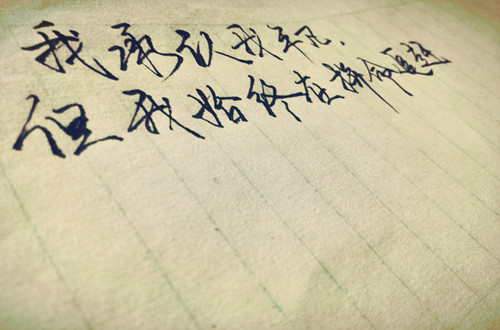 我承认我平凡、
但我始终在拼命追赶